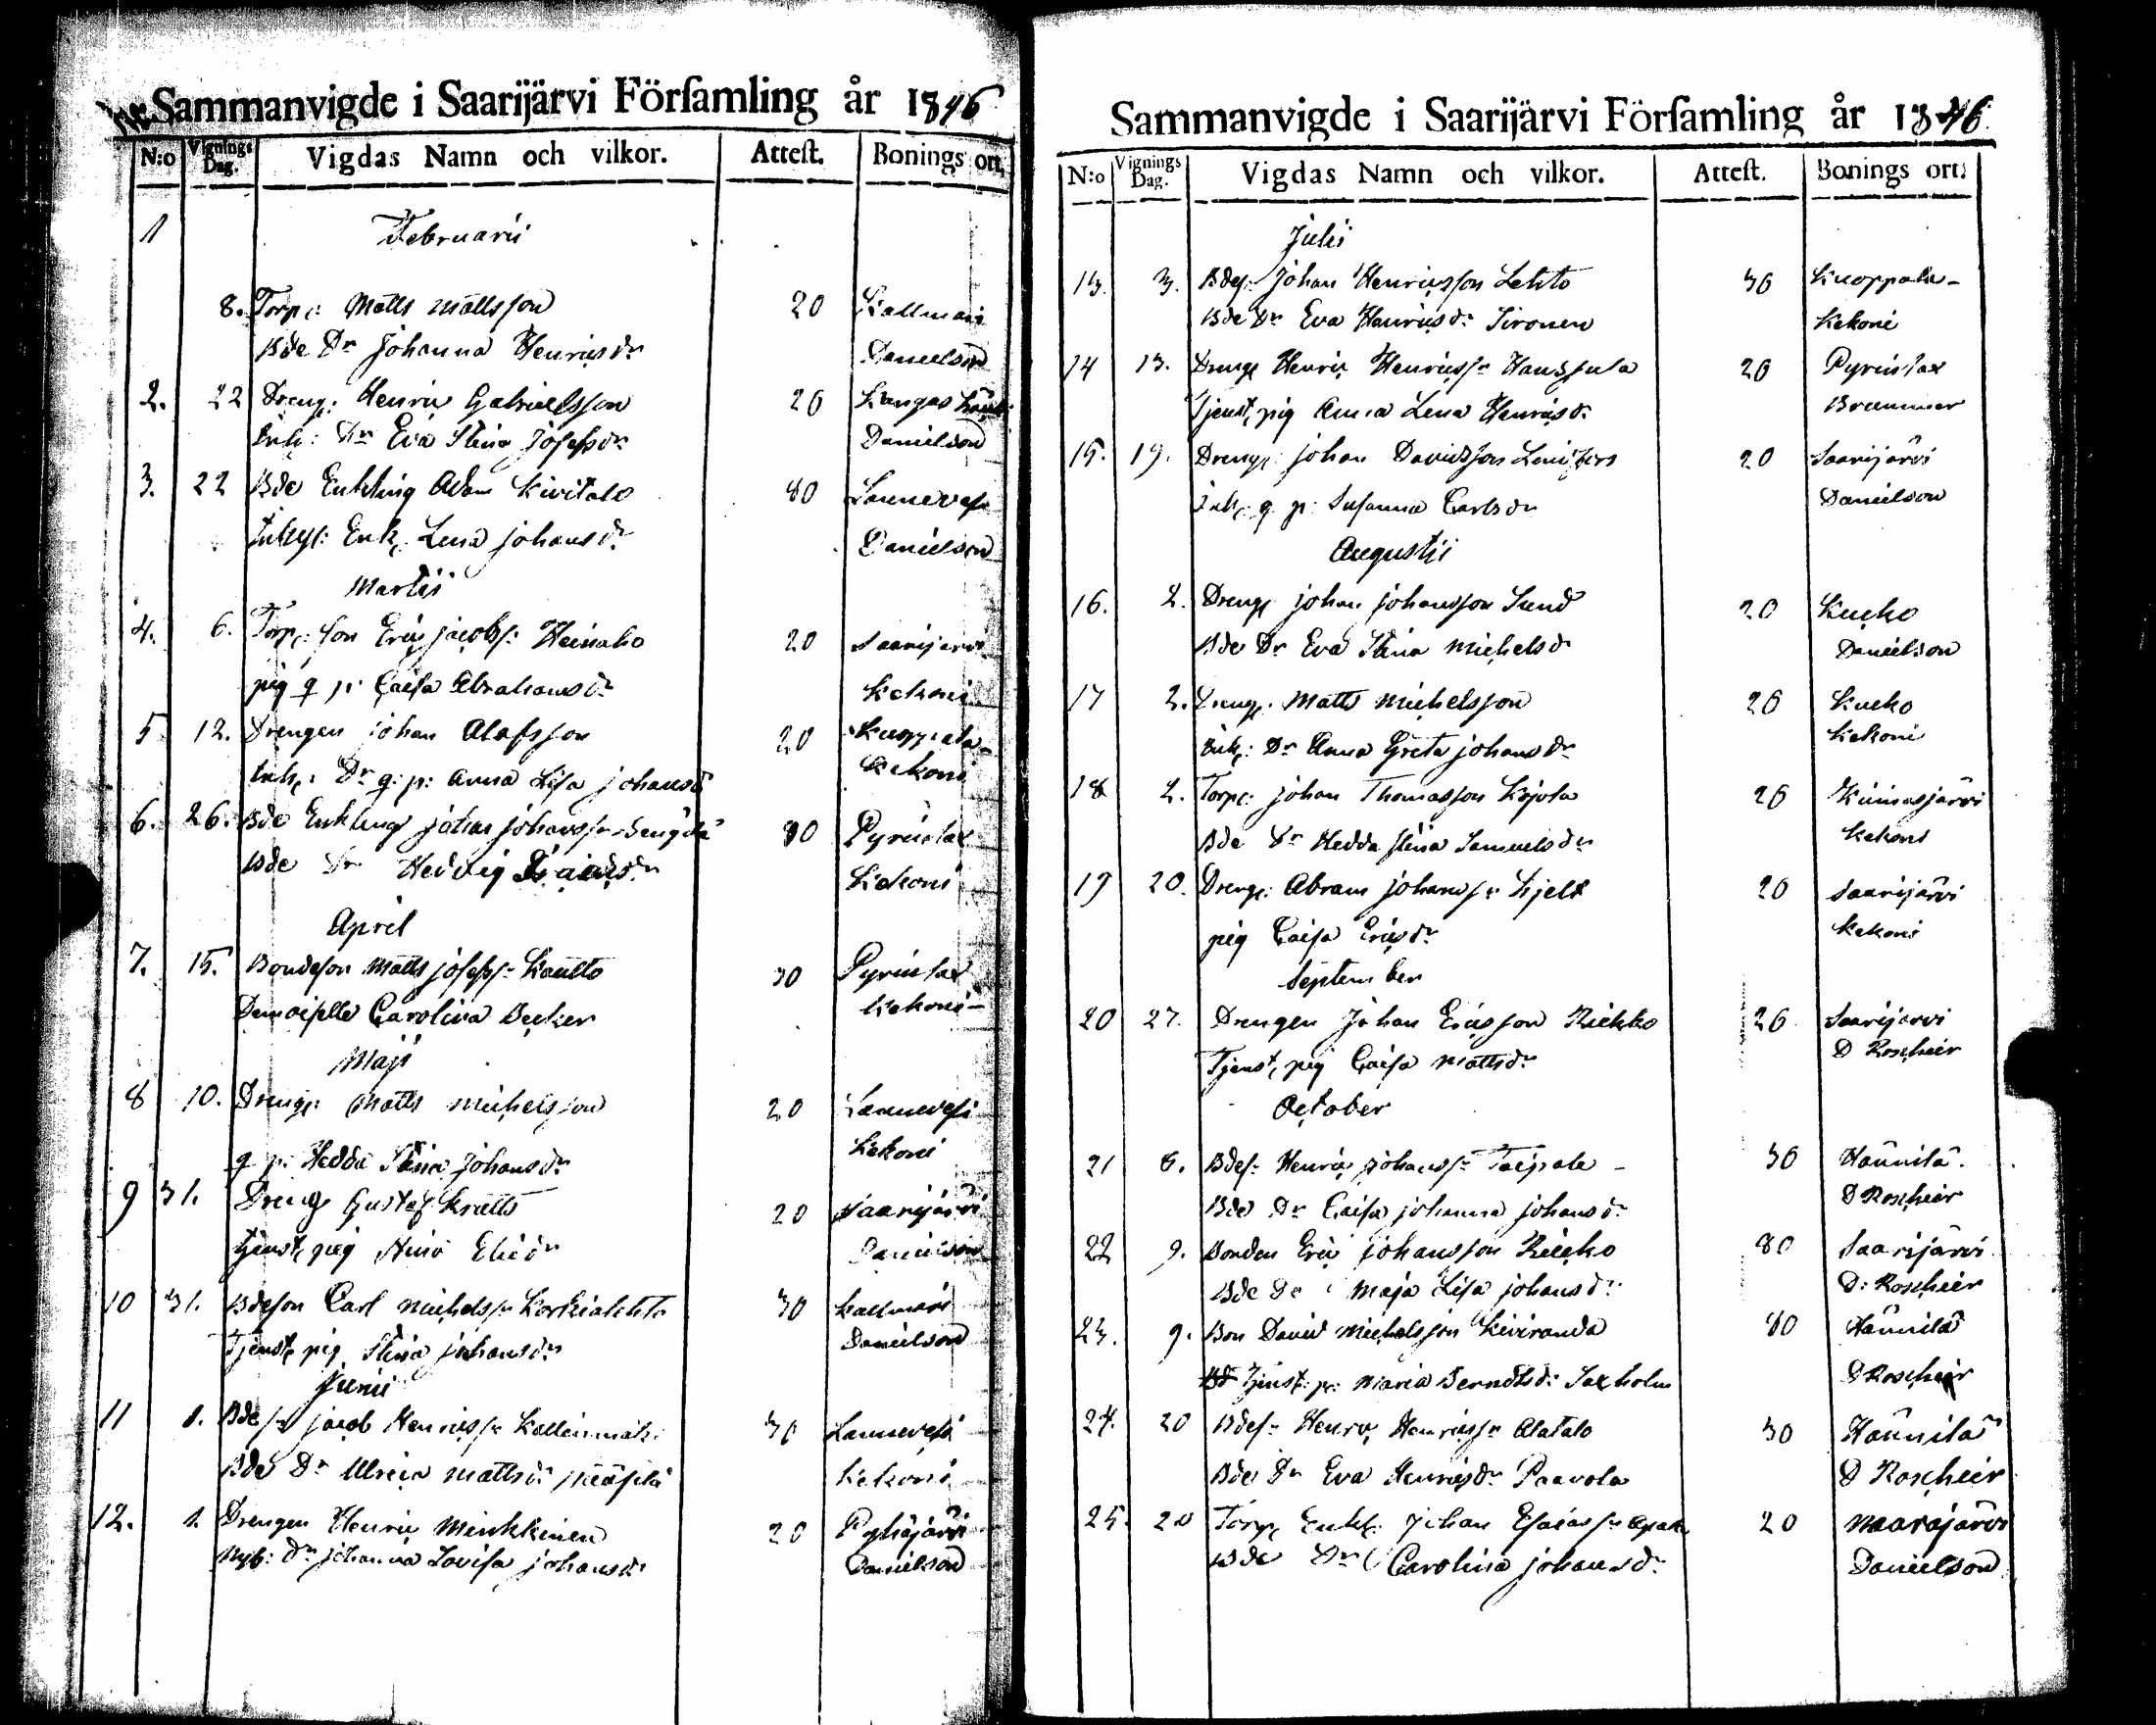 Sammanvigde i Saarijärvi Förſamling år 1846
N:o Vignings Dag. Vigdas Namn och vilkor. Atteſt. Bonings ort.
1 Februarii
8. Torp: Matts Mattsson 20 Kallmari
Bde Dr Johanna Henricsdr Danielson
2. 22 Dreng: Henric Gabrielsson 20 Kangas
Inh: Dr Eva Stina Josefsdr Danielson
3. 22 Bde Enkling Adam Kivitalo 80 Lannevesi
Inhys: Enk, Lena Johansdr Danielson
Martii
4. 6. Torp: son Eric Jacobss: Heinaho 20 Saarijärvi
pig q p: Caisa Abrahamsdr Kekoni
5 12. Drengen Johan Olofsson 20 Kuoppala
Inh: Dr q: p: Anna Lisa Johansd Kekoni
6. 26. Bde Enkling Johan Johanss: 80 Pyrintax
Bde Dr Hedvig Kekoni
April
7. 15. Bondeson Matts Josefss: Kautto 30 Pyrintax
Demoiselle Carolina Becker Kekoni
Maji
8 10. Dreng: Matts Michelsson 20 Lannevesi
q p: Hedda Stina Johansdr Kekoni
9 31. Dreng Gustaf Kratts 20 Saarijärvi
tjenst, pig Elisdr Danielson
10 31. Bdeson Carl Michelss: Korkialehto 30 Kallmari
Tjenst, pig Stina Johansdr Danielson
Junii
11 1. Bdes: Jacob Henricss: 30 Lannevesi
Bde Dr Ulrica Mattsdr Kekoni
12. 1. Drengen Henric Minkkinen 20 Pyhäjärvi
Nyb: dr Johanna Lovisa Johansdr Danielson
Sammanvigde i Saarijärvi Förſamling år 1846
N:o Vignings Dag. Vigdas Namn och vilkor. Atteſt. Bonings ort.
Julii
13. 3. Bdes: Johan Henricsson Lehto 30 Kuoppala
Bde Dr Eva Henricsdr Sironen Kekoni
14 13. Dreng Henric Henricss: 20 Pyrintax
Tjenst, pig Anna Lena Henricsdr
15. 19. Dreng: Johan Davidsson 20 Saarijärvi
Inh: q p: Susanna Carlsdr Danielson
Augustii
16. 2. Dreng: Johan Johansson Sund 20 Kucko
Bde Dr Eva Stina Michelsd Danielson
17 2. Dreng: Matts Michelsson 20 Kucko
Inh: Dr Anna Greta Johansdr Kekoni
18 2. Torp: Johan Thomasson Kojola 20 Kiimasjärvi
Bde Dr Hedda Stina Samuelsdr Kekoni
19 20. Dreng: Abram Johanss: Hjelt 20 Saarijärvi
pig Caisa Ericsdr Kekoni
September
20 27. Drengen Johan Ericsson Riekko 20 Saarijärvi
Tjenst, pig Caisa Mattsdr D Roschier
October
21 6. Bdes: Henric Johanss: Taipale 30 Hännilä
Bde Dr Caisa Johanna Johansdr D Roschier
22 9. Bonden Eric Johansson 80 Saarijärvi
Bde Dr Maja Lisa Johansdr D: Roschier
23. 9. Bon David Michelsson Kiviranda 80 Hännilä
Tjenst: p: Maria Berndtsdr Saxholm D Roschier
24. 20 Bdes: Henric Henricss: Alatalo 30 Hännilä
Bde Dr Eva Henricsdr Paavola D Roschier
25. 20 Torp, Enkl: Johan Esaiass: 20 Maarajärvi
Bde Dr Carolina Johansdr Danielson